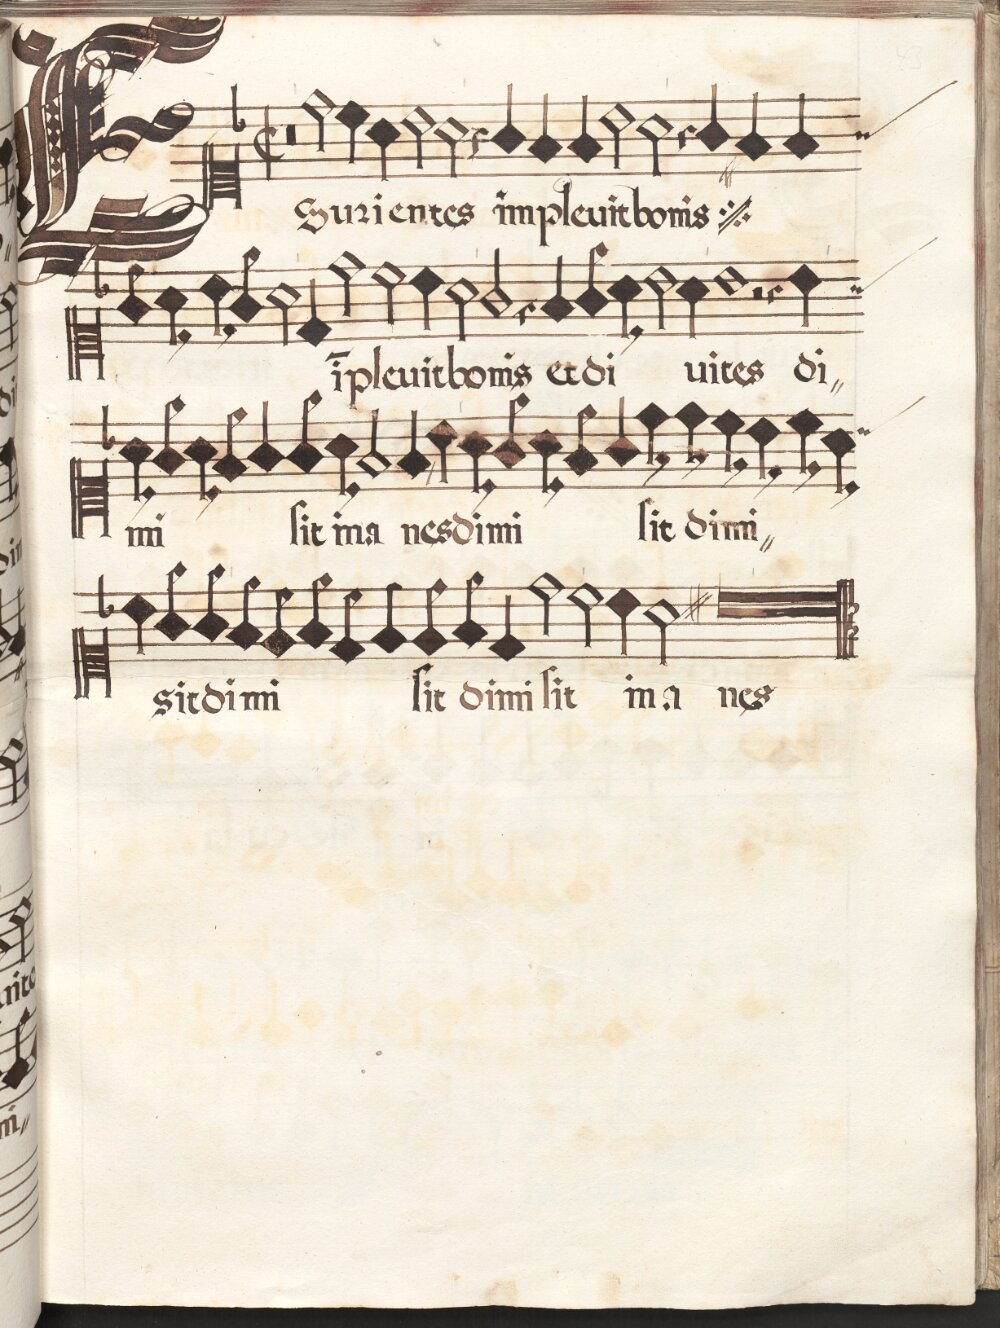 Esurientes īmpleuit bonis
īpleuit bonis et di uites di„
mi sit ina nes dimi sit dimi„
sit dimi sit dimi sit in a nes